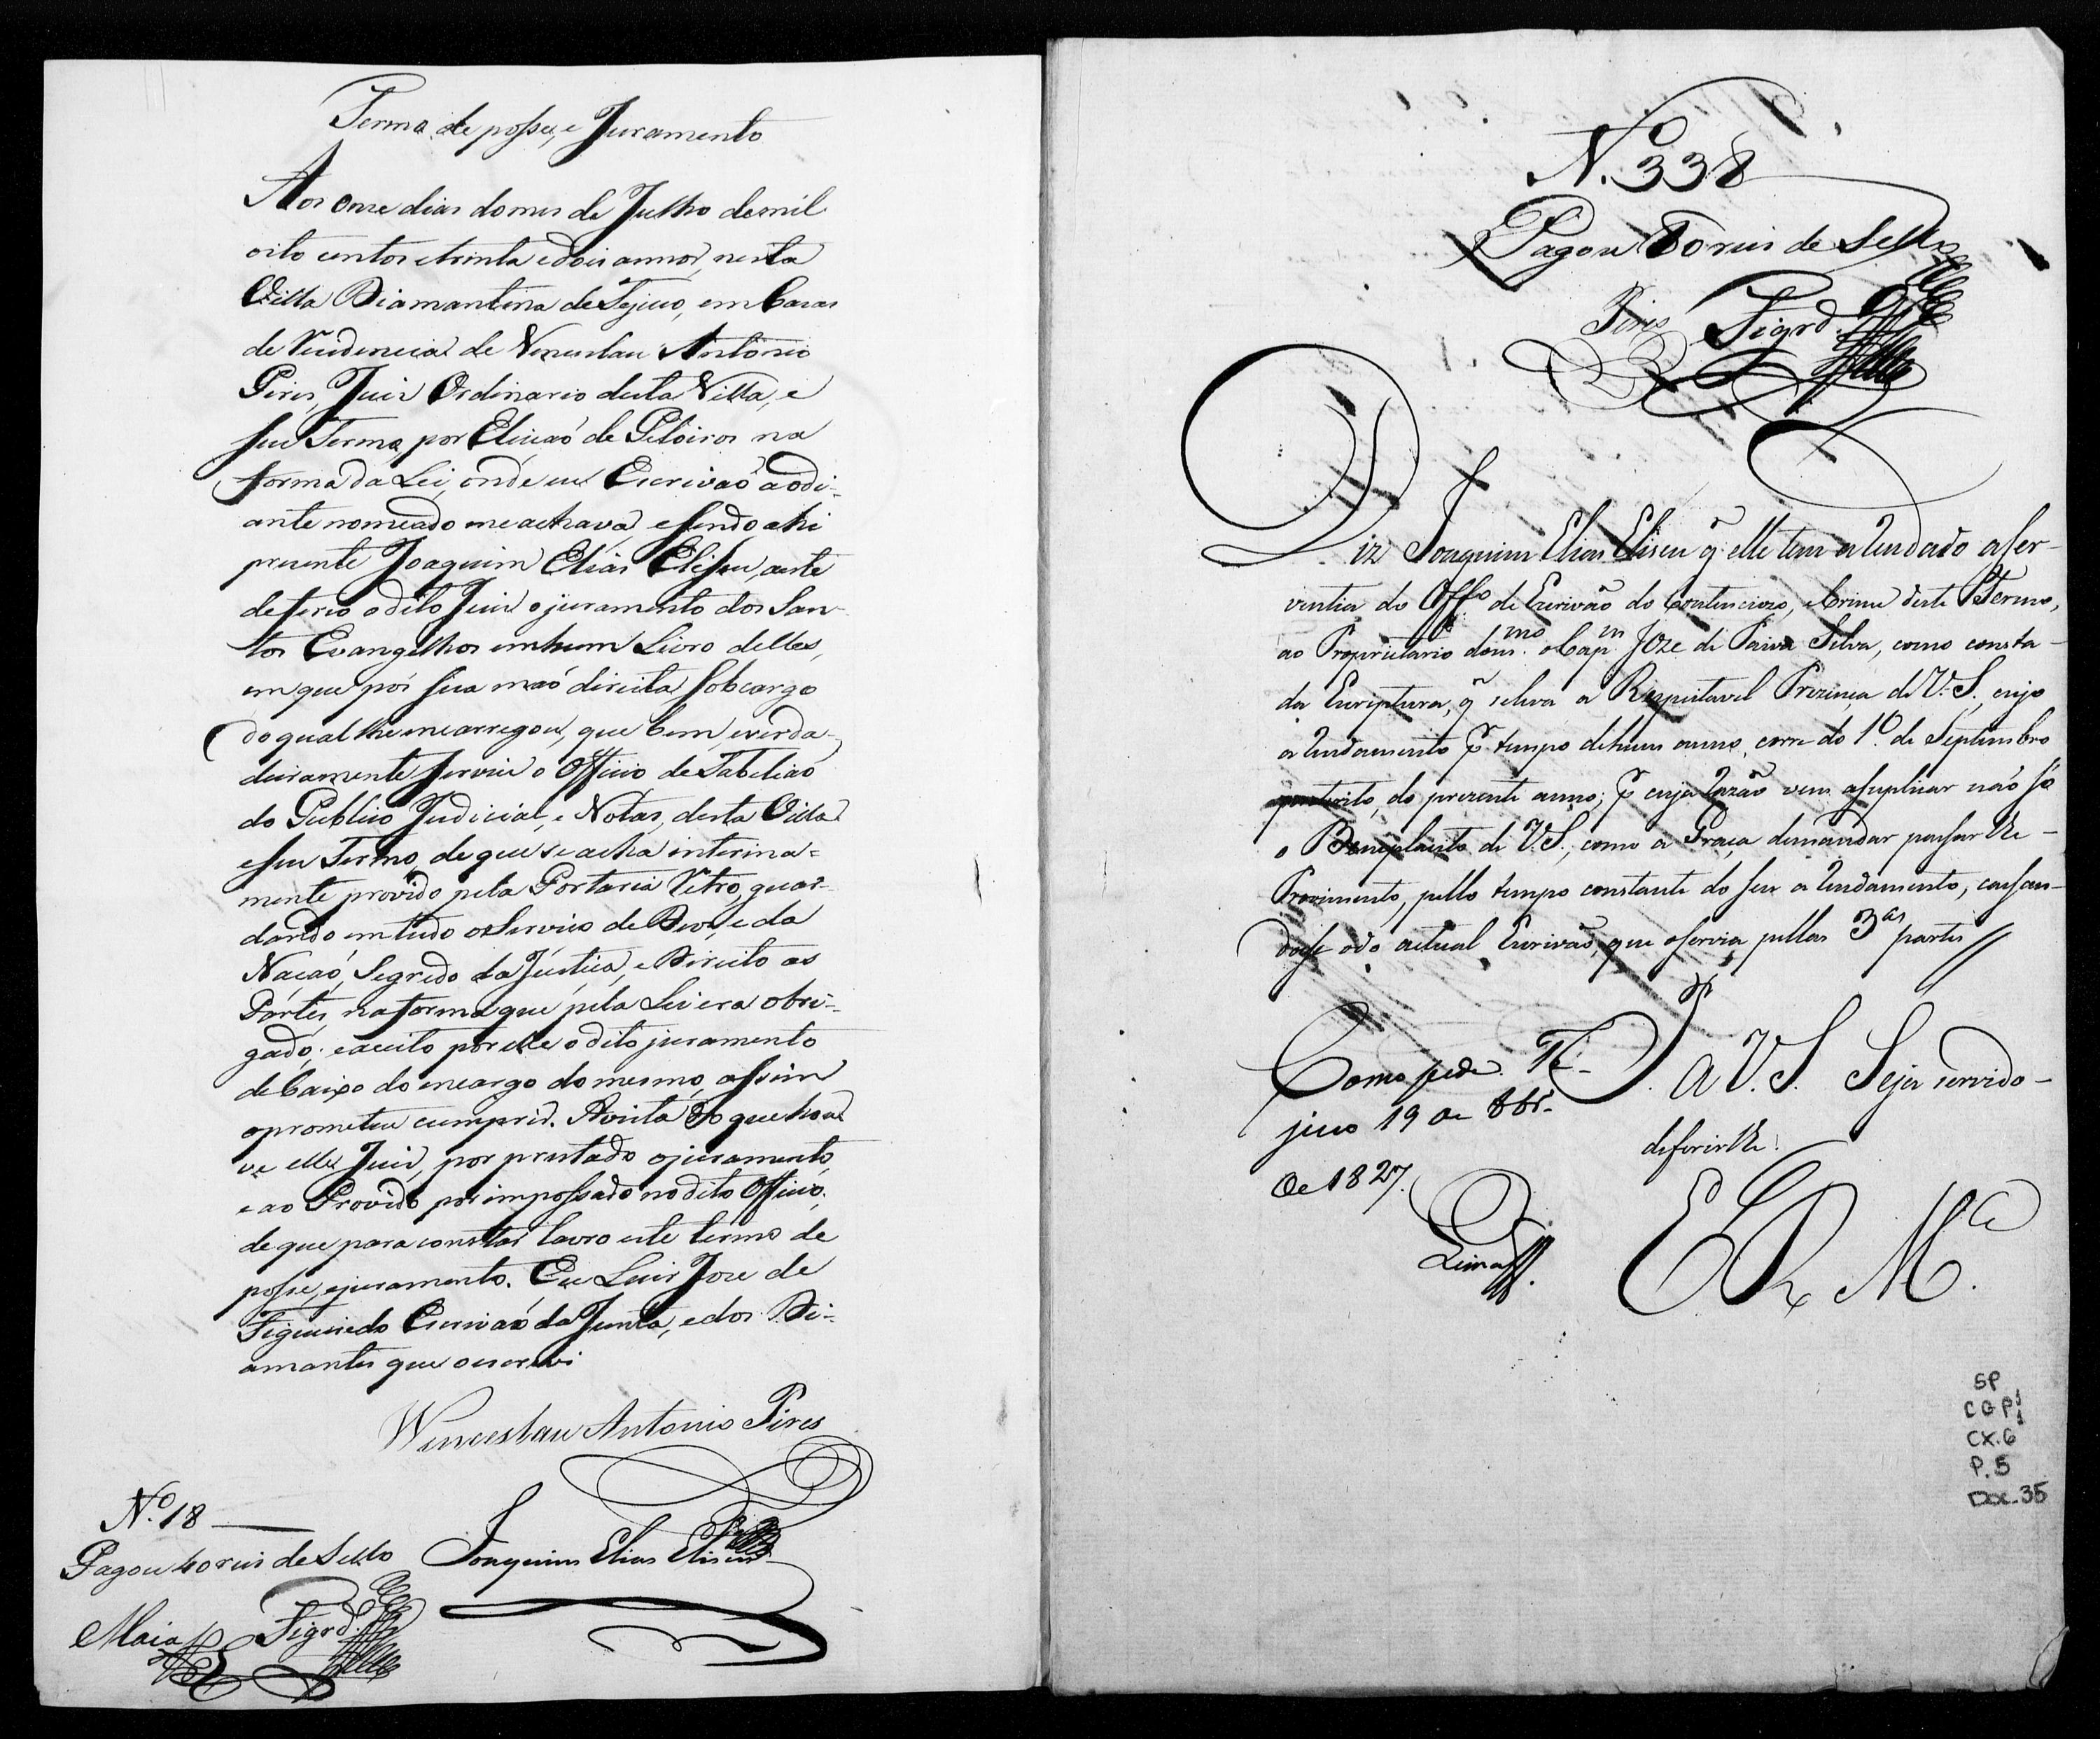 Termo de posse, e Juramento
Aos onze dias do mes de Julho de mil
oito centos e trinta e dois annos, nesta
Villa Diamantina de Tejuco, em Cazas
de Rezidencia de Venceslau Antonio
Pires, Juiz Ordinario desta Villa, e
seu Termo, por Eleicaó de Peloiros na
forma da Lei, onde eu Escrivaó aodi-
ante nomeado me achava, e sendo ahi
prezente Joaquim Elias Eliseu, a este
deferio o dito Juiz o juramento dos San-
tos Evangelhos em hum Livro delles,
em que pos sua maó direita, sob cargo
do qual lhe encarregou, que bem, e verda-
deiramente servisse o Officio de Tabeliaó
do Publico Judicial, e Notas, desta Villa
e seu Termo, de que se acha interina=
mente provido pela Portaria Retro, guar-
dando em tudo o Servico de Deos, e da
Nacaó, Segredo da Justica, e Direito as
Partes, na forma que pela Lei era obri-
gado; e aceito por elle o dito juramento
debaixo do encargo do mesmo, assim
o prometeu cumprir. A vista do que hou-
ve elle Juiz, por prestado o juramento,
e ao Provido por impossado no dito Officio,
de que para constar lavro este termo de
posse, e juramento. Eu Luis Joze de
Figueiredo Escrivaó da Junta, e dos Di-
amantes que o escrevi
Wenceslau Antonio Pires
Joaquim Elias Eliseu
Nº. 18
Pagou 40 reis de Sello
Maia Figrdº.
N. 338
Pagou 80 reis de Sello
Pires Figrdº.
Diz Joaquim Elias Eliseu q̃ elle tem arrendado a ser-
ventia do Offº. de Escrivão do Contenciozo, e Crime deste Termo,
ao Proprietario do mmo. o Capm. Joze de Paiva Silva, como consta
da Escriptura, q̃ leva a Respeitavel Prezença de V. S., cujo
arrendamento p̃ tempo de hum anno, corre do 1º. de Septembro
preterito, do prezente anno; p̃ cuja razão vem a suplicar não só
o Beneplacito de V. S., como a Graça de mandar passar lhe
Provimento, pello tempo constante do seu arrendamento, cassan-
dose o do actual Escrivão, que o servia pellas 3as partes
P. A V. S. Seja servido
deferir lhe.
E R Mce
Como pede. Te-
juco 19 de 8br.
de 1827.
Lima
SP
CGP1
CX.6
P.5
Doc.35